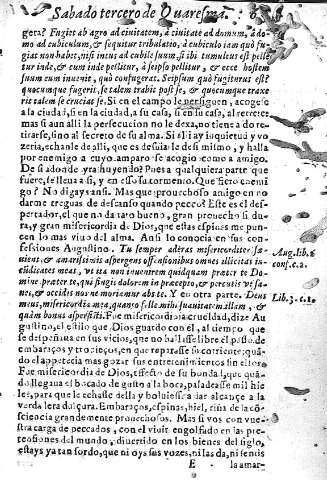 Sabado tercero de Quaresma.
gera? Fugit ab agro ad ciuitatem, à ciuitate ad domum, à do-
mo ad cubiculum, & sequitur tribulatio, à cubiculo iam quò fu-
giat non habet, nisi intus ad cubile suum. si ibi tumultus est pelli-
tur inde, & cum inde pellitur, à seipso pellitur, & ecce hostem
suum eum inuenit, quò confugerat. Seipsum quò fugiturus est?
quocumque fugerit, se talem trahit post se, & quocumque traxe
rit talem se cruciat se. Si en el campo le persiguen, acogese
a la ciudad, si en la ciudad, a su casa, si en su casa, al retrete,
mas si aun alli la persecucion no le dexa, no tiene a do re-
tirarse, sino al secreto de su alma. Si alli ay inquietud y vo-
zeria, echanle de alli, que es desuiarle de si mismo, y halla
por enemigo a cuyo amparo se acogio como a amigo.
De si adonde yra huyendo? Pues a qualquiera parte que
fuere, se lleua a si, y en esso su tormento. Que fiero enemi
go? No digays nsi. Mas que prouechoso amigo en no
darme treguas de descanso quando pecco? Este es el des-
pertador, el que no da rato bueno, gran prouecho si du-
ra, y gran misericordia de Dios, que estas espinas me pun-
cen lo mas viuo del alma. Ansi lo conocia en sus con-
fessiones Augustino. Tu semper aderas misericorditer sæ-
uiens, & amarissimis aspergens offensionibus omnes illicitas iu-
cūditates meas, vt ita non inuenirem quidquam præter te Do
mine præter te, qui fingis dolorem in præcepto, & percutis vt sa-
nes, & occidis nos ne moriamur abs te. Y en otra parte. Deus
meus, misericordia mea, quanto felle mihi suauitatem illam, &
quàm bonus aspersisti. Fue misericordia crueldad, dize Au
gustino, el estilo que Dios guardò con el, al tiempo que
se despeñaua en sus vicios, que no hallasse libre el passo de
embaraços y tropieços, en que reparasse su corriente; quā-
do el apetecia mas gozar sus entretenimientos sin estoruo
Fue misericordia de Dios, efecto de su bondad, que quā-
do llegaua el bocado de gusto a la boca, paladeasse mil hie
les, para que le echasse della y boluiesse a dar alcance a la
verdadera dulçura. Embaraços, espinas, hiel, riña de la cō-
sciencia grandemente prouechosos. Mas si vos con vues-
tra carga de peccados, con el viuir engolfado en las pre-
tensiones del mundo, diuertido en los bienes del siglo,
estays ya tan sordo, que ni oys sus vozes, ni las da, ni sentis
E la amar-
Aug. lib. 2
conf. c. 2.
Lib. 3. c. 1.